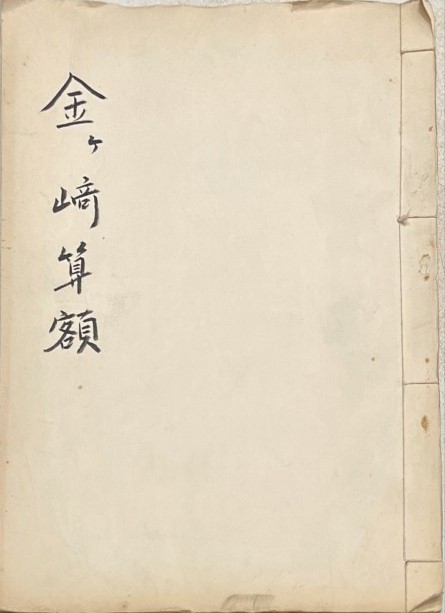 金ヶ﨑算額